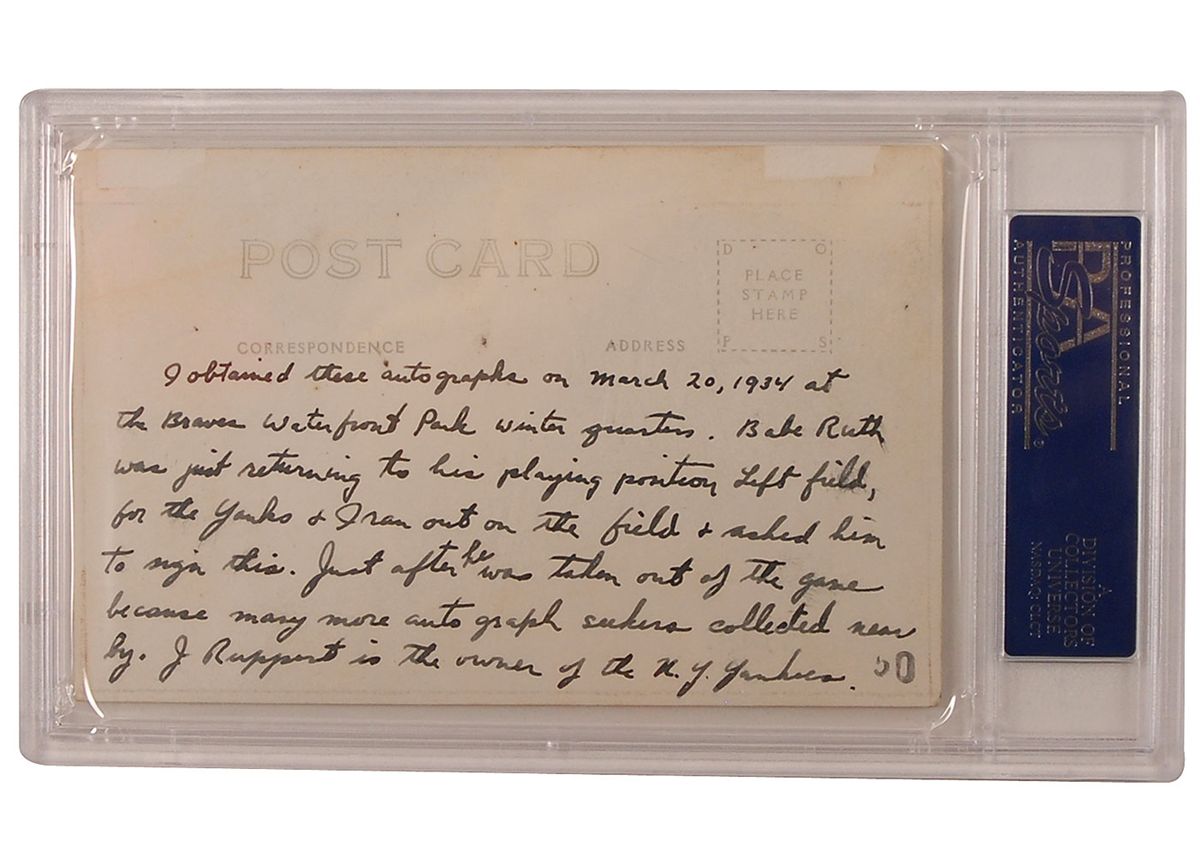 POST CARD
D O
PLACE
STAMP
HERE
P S
CORRESPONDENCE ADDRESS
I obtained these autographs on March 20, 1934 at
the Braves Waterfront Park winter quarters. Babe Ruth
was just returning to his playing position Left field,
for the Yanks & I ran out on the field & asked him
to sign this. Just after he was taken out of the game
because many more auto graph seekers collected near
by. J Ruppert is the owner of the N.Y. Yankees.
50
PROFESSIONAL
PSA
Sports
AUTHENTICATOR
A
DIVISION OF
COLLECTORS
UNIVERSE
NASDAQ: CLCT